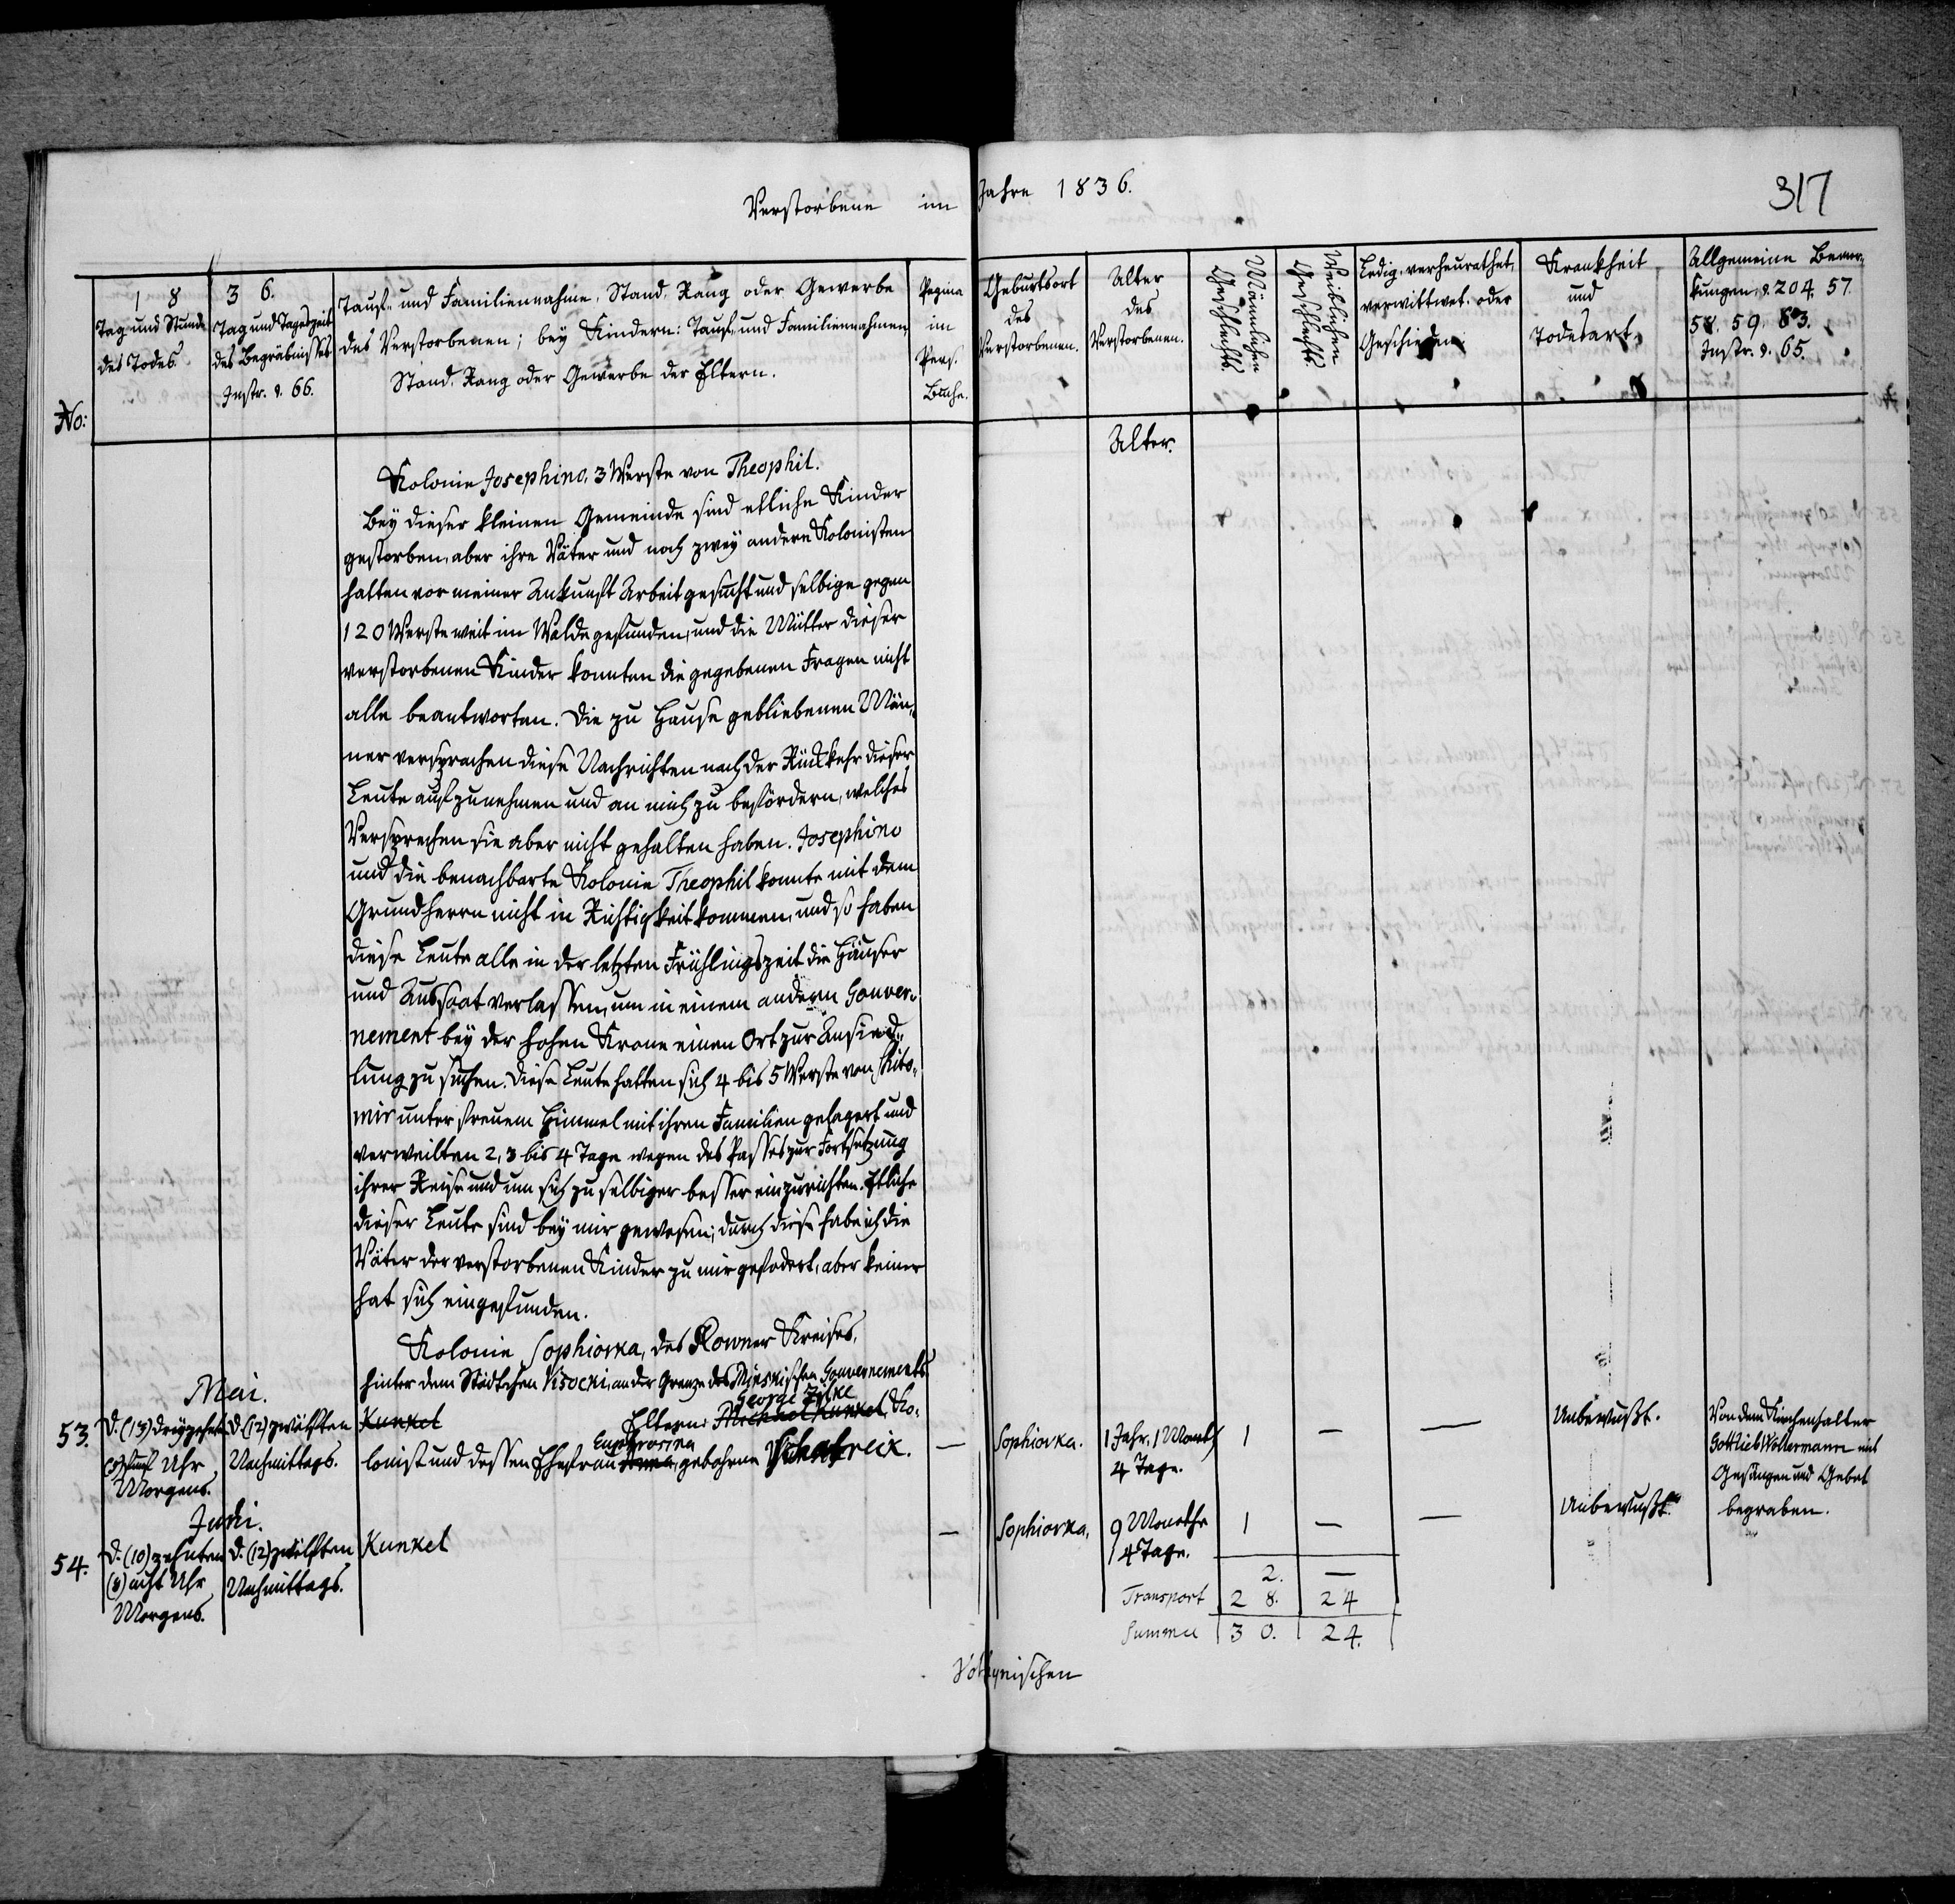 Verstorbene im Jahre 1836.
317
No:
18
Tag und Stunde
des Todes.
36.
Tag und Tageszeit
des Begräbnißes
Instr. §. 66.
Tauf- und Familiennahme, Stand, Rang oder Gewerbe
des Verstorbenen; bey Kindern: Tauf- und Familiennahmen,
Stand, Rang oder Gewerbe der Eltern.
Pagina
im
Pers.
Buche.
Geburtsort
des
Verstorbenen.
Alter
des
Verstorbenen.
Männlichen
Geschlechts.
Weiblichen
Geschlechts.
Ledig, verheurathet,
verwittwet, oder
Geschieden.
Krankheit
und
Todesart.
Allgemeine Bemer-
kungen, §. 204, 57
58. 59. 83.
Instr. §. 65.
Alter.
Kolonie Josephino, 3 Werste von Theophil.
Bey dieser kleinen Gemeinde sind etliche Kinder
gestorben, aber ihre Väter und noch zwey andere Kolonisten
hatten vor meiner Ankunft Arbeit gesucht und selbige gegen
120 Werste weit im Walde gefunden, und die Mütter dieser
verstorbenen Kinder konnten die gegebenen Fragen nicht
alle beantworten. Die zu Hause gebliebenen Män-
ner versprachen diese Nachrichten nach der Rückkehr dieser
Leute aufzunehmen und an mich zu befördern, welches
Versprechen sie aber nicht gehalten haben. Josephino
und die benachbarte Kolonie Theophil konnte mit dem
Grundherrn nicht in Richtigkeit kommen, und so haben
diese Leute alle in der letzten Frühlingszeit die Häuser
und Aussaat verlassen, um in einem andern Gouver-
nement bey der hohen Krone einen Ort zur Ansied-
lung zu suchen. Diese Leute hatten sich 4 bis 5 Werste von Shito-
mir unter freuem Himmel mit ihren Familien gelagert und
verweilten 2, 3 bis 4 Tage wegen des Passes zur Fortsetzung
ihrer Reise und um sich zu selbiger besser einzurichten. Etliche
dieser Leute sind bey mir gewesen; durch diese habe ich die
Väter der verstorbenen Kinder zu mir gefodert, aber keiner
hat sich eingefunden.
Kolonie Sophiovka, des Rowner Kreises,
hinter dem Städtchen Visocki, an der Grenze des Minskischen Gouvernements
Mai.
George Zilke
53. D. (13) dreyzehnten D. (12) zwölften Kunkel Eltern: Michael Kunkel, Ko-
Euphrosina
(5) fünf Uhr Nachmittags. lonist und dessen Ehefrau Anna, gebohrne Schatreix. — Sophiovka. 1 Jahr, 1 Monat, 1 — — Unbewußt.
Morgens. 4 Tage.
Von dem Kirchenhalter
Gottlieb Wollermann mit
Gesängen und Gebet
begraben.
Juni.
54. D. (10) zehnten D. (12) zwölften Kunkel — Sophiovka. 9 Monathe 1 — — Unbewußt.
(8) acht Uhr Nachmittags. 4 Tage.
Morgens.
2. —
Transport 28. 24
Summa 30. 24.
Volhynischen